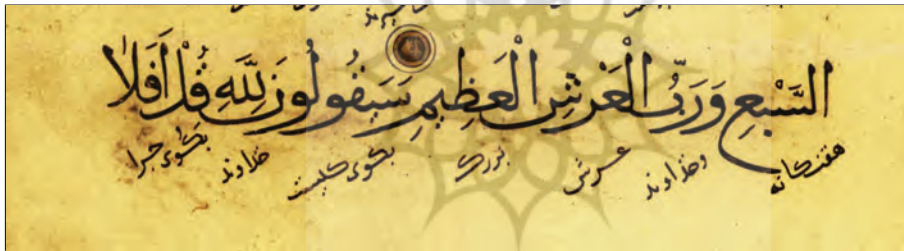 السَّبْعِ وَرَبُّ الْعَرْشِ الْعَظِيمِ سَيَقُولُونَ لِلَّهِ قُلْ أَفَلَا
هفت‌گانه وخداوند عرش بزرگ بگوی خداوند بگوی چرا